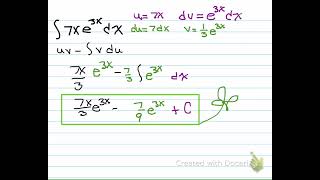 ∫7xe^{3x}dx u=7x dv=e^{3x}dx
du=7dx v=1/3 e^{3x}
uv-∫vdu
7x/3 e^{3x}-7/3∫e^{3x} dx
7x/3 e^{3x}- 7/9 e^{3x}+C
Created with Doceri